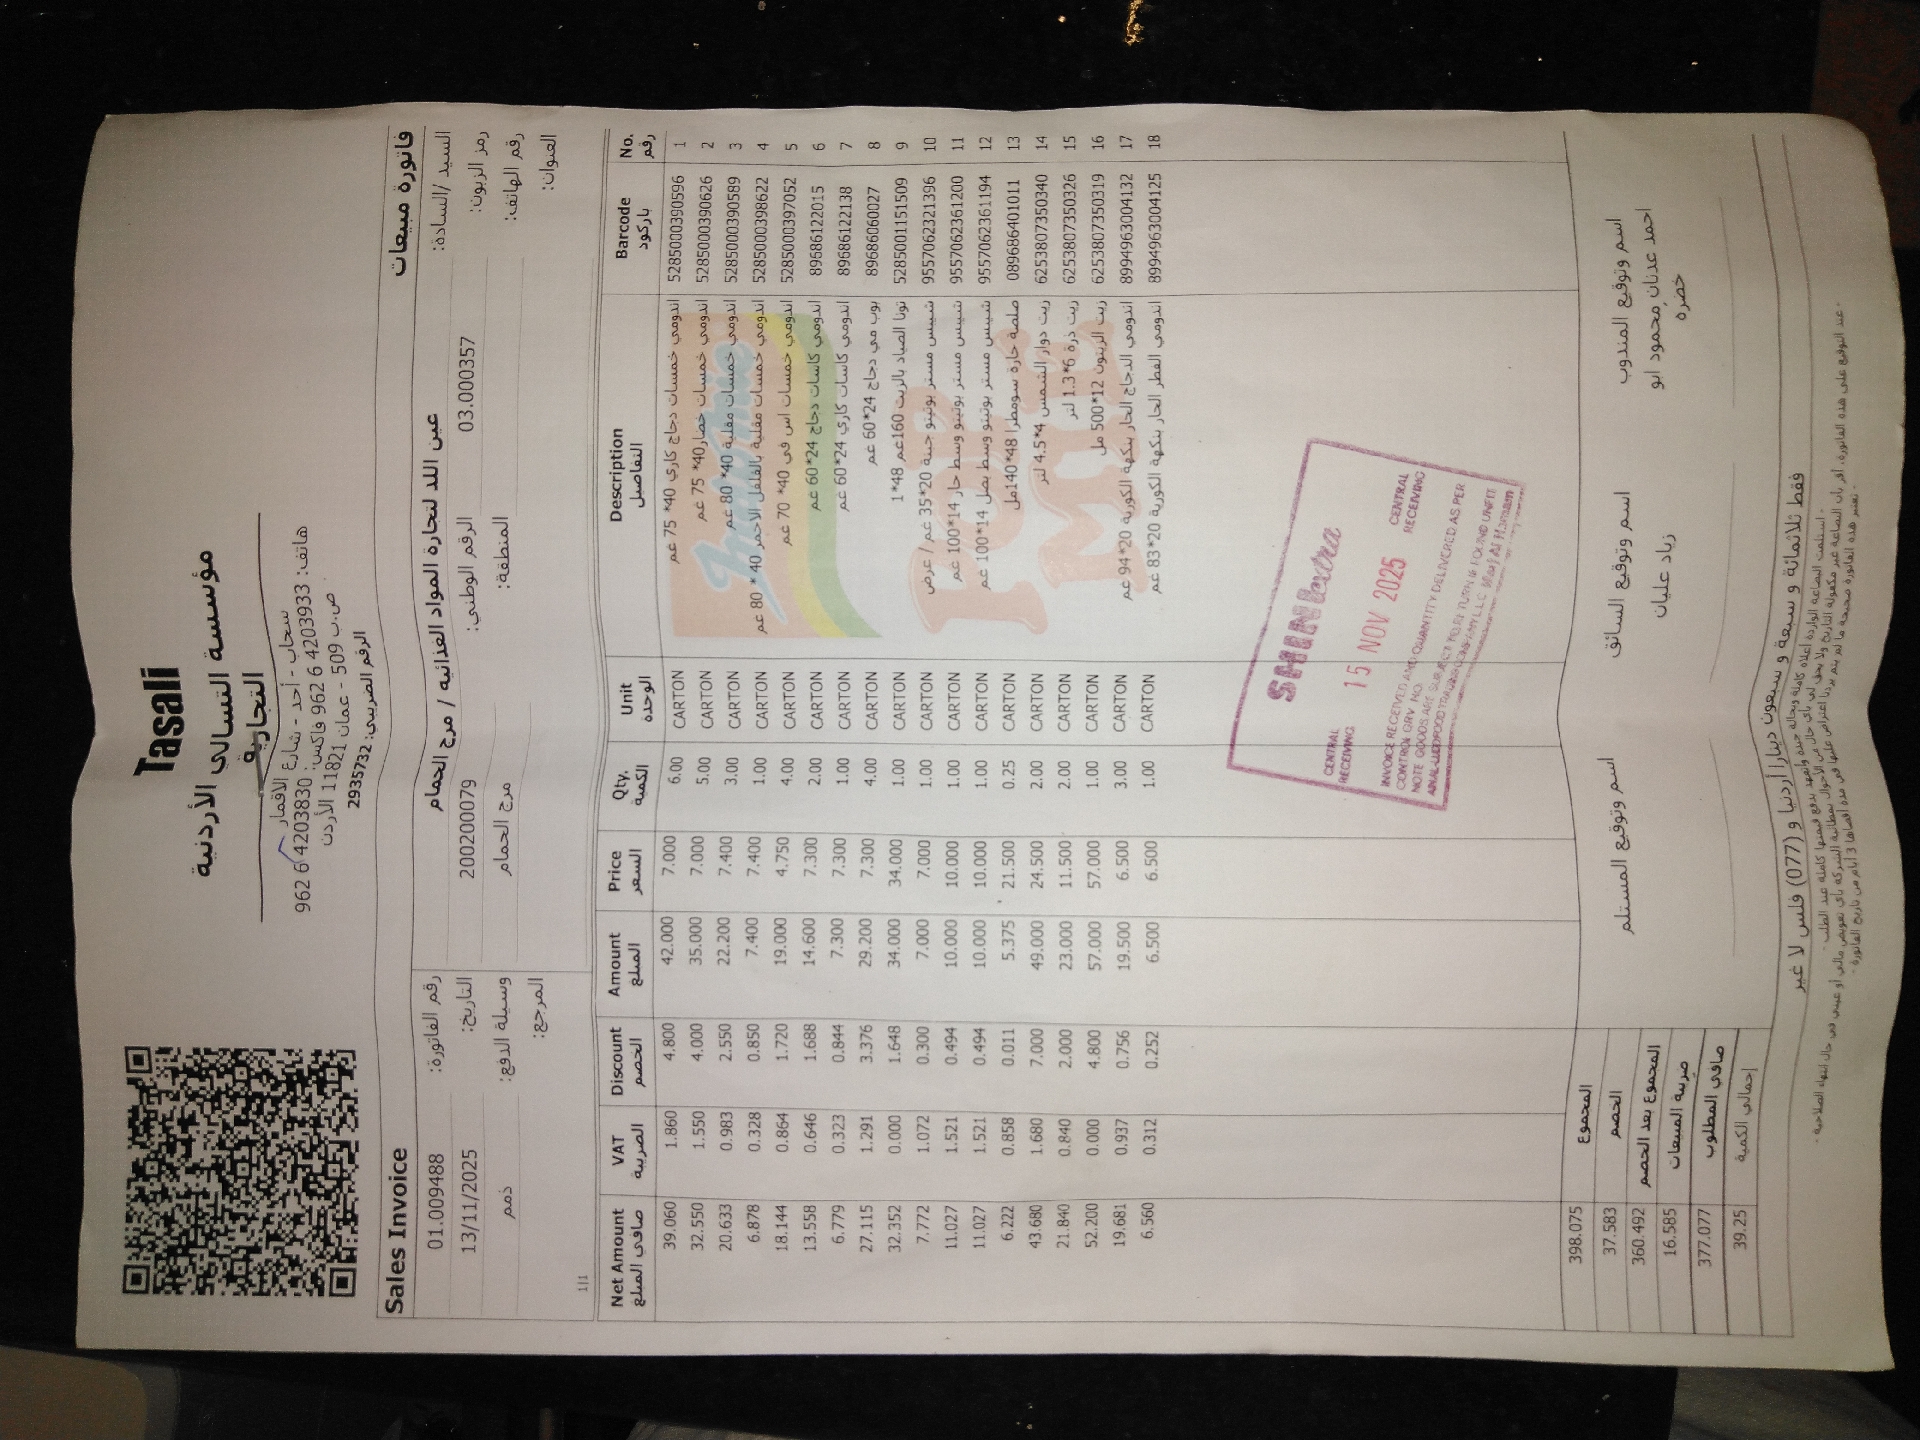 Tasali
مؤسسة التسالي الأردنية
التجارية
سحاب - أحد - شارع الأقمار
هاتف: 4203933 6 962 فاكس: 4203830 6 962
ص.ب 509 - عمان 11821 الأردن
الرقم الضريبي: 2935732
Sales Invoice فاتورة مبيعات
السيد /السادة: عين اللد لتجارة المواد الغذائيه / مرج الحمام رقم الفاتورة: 01.009488
رمز الزبون: 03.000357 الرقم الوطني: 200200079 التاريخ: 13/11/2025
رقم الهاتف: المنطقة: مرج الحمام وسيلة الدفع: ذمم
العنوان: المرجع:
1|1
Net Amount VAT Discount Amount Price Qty. Unit Description Barcode No.
صافي المبلغ الضريبة الخصم المبلغ السعر الكمية الوحده التفاصيل باركود رقم
39.060 1.860 4.800 42.000 7.000 6.00 CARTON اندومي خمسات دجاج كاري 40* 75 غم 5285000390596 1
32.550 1.550 4.000 35.000 7.000 5.00 CARTON اندومي خمسات خضار40* 75 غم 5285000390626 2
20.633 0.983 2.550 22.200 7.400 3.00 CARTON اندومي خمسات مقلية 40* 80 غم 5285000390589 3
6.878 0.328 0.850 7.400 7.400 1.00 CARTON اندومي خمسات مقلية بالفلفل الاحمر 40 * 80 غم 5285000398622 4
18.144 0.864 1.720 19.000 4.750 4.00 CARTON اندومي خمسات اس في 40* 70 غم 5285000397052 5
13.558 0.646 1.688 14.600 7.300 2.00 CARTON اندومي كاسات دجاج 24*60 غم 89686122015 6
6.779 0.323 0.844 7.300 7.300 1.00 CARTON اندومي كاسات كاري 24*60 غم 89686122138 7
27.115 1.291 3.376 29.200 7.300 4.00 CARTON بوب مي دجاج 24*60 غم 89686060027 8
32.352 0.000 1.648 34.000 34.000 1.00 CARTON تونا الصياد بالزيت 160غم 48*1 5285001151509 9
7.772 1.072 0.300 7.000 7.000 1.00 CARTON شيبس مستر بوتيتو جبنة 20*35 غم / عرض 9557062321396 10
11.027 1.521 0.494 10.000 10.000 1.00 CARTON شيبس مستر بوتيتو وسط حار 14*100 غم 9557062361200 11
11.027 1.521 0.494 10.000 10.000 1.00 CARTON شيبس مستر بوتيتو وسط بصل 14*100 غم 9557062361194 12
6.222 0.858 0.011 5.375 21.500 0.25 CARTON صلصة حارة سومطرا 48*140مل 089686401011 13
43.680 1.680 7.000 49.000 24.500 2.00 CARTON زيت دوار الشمس 4*4.5 لتر 6253807350340 14
21.840 0.840 2.000 23.000 11.500 2.00 CARTON زيت ذرة 6*1.3 لتر 6253807350326 15
52.200 0.000 4.800 57.000 57.000 1.00 CARTON زيت الزيتون 12*500 مل 6253807350319 16
19.681 0.937 0.756 19.500 6.500 3.00 CARTON اندومي الدجاج الحار بنكهة الكورية 20*94 غم 8994963004132 17
6.560 0.312 0.252 6.500 6.500 1.00 CARTON اندومي الفطر الحار بنكهة الكورية 20*83 غم 8994963004125 18
Indomie
POP MIE
CENTRAL RECEIVING
15 NOV 2025
CENTRAL RECEIVING
INVOICE RECEIVED AND QUANTITY DELIVERED AS PER
CONTROL GRV NO.
NOTE GOODS ARE SUBJECT TO RETURN IF FOUND UNFIT
المجموع 398.075
الخصم 37.583
المجموع بعد الخصم 360.492
ضريبة المبيعات 16.585
صافي المطلوب 377.077
إجمالي الكمية 39.25
اسم وتوقيع المندوب اسم وتوقيع السائق اسم وتوقيع المستلم
احمد عدنان محمود ابو خضره زياد عليان
فقط ثلاثمائة و سبعة و سبعون دينارا أردنيا و (077) فلس لا غير